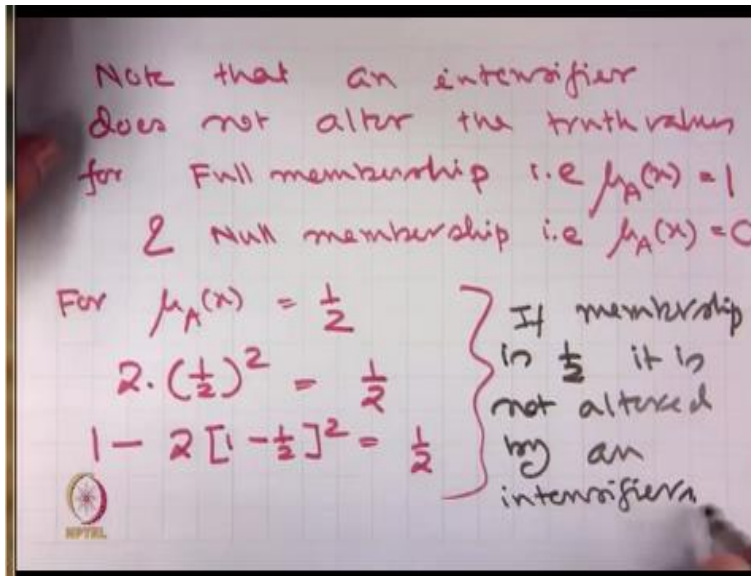 Note that an intensifier
does not alter the truth values
for Full membership i.e μ_A(x) = 1
& Null membership i.e μ_A(x) = 0
For μ_A(x) = 1/2
2 · (1/2)² = 1/2
1 − 2 [1 − 1/2]² = 1/2
If membership
is 1/2 it is
not altered
by an
intensifiers
NPTEL